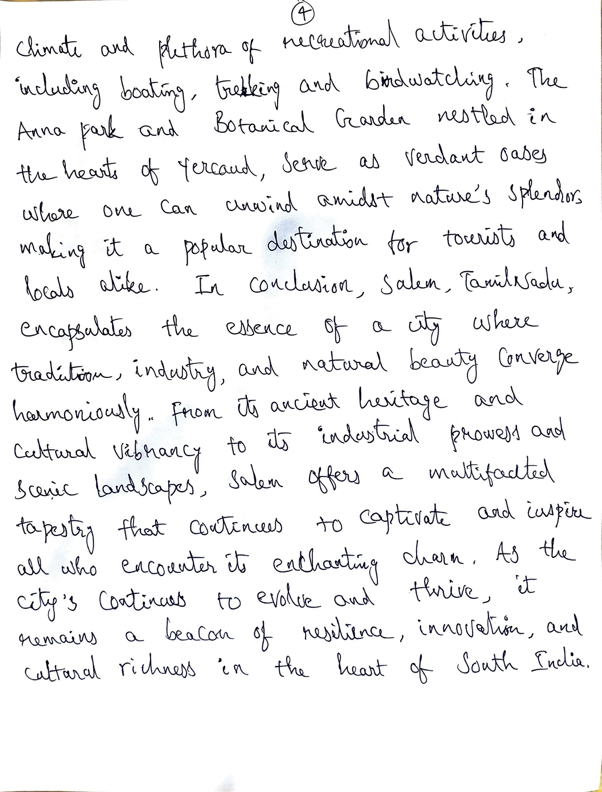 4
climate and plethora of recreational activities,
including boating, trekking and birdwatching. The
Anna park and Botanical Garden nestled in
the hearts of Yercaud, serve as verdant oases
where one can unwind amidst nature's splendor,
making it a popular destination for tourists and
locals alike. In conclusion, Salem, TamilNadu,
encapsulates the essence of a city where
tradition, industry, and natural beauty converge
harmoniously.. From its ancient heritage and
cultural vibrancy to its industrial prowess and
scenic landscapes, Salem offers a multifacted
tapestry that continues to captivate and inspire
all who encounter its enchanting charm. As the
city's continues to evolve and thrive, it
remains a beacon of resilience, innovation, and
cultural richness in the heart of South India.